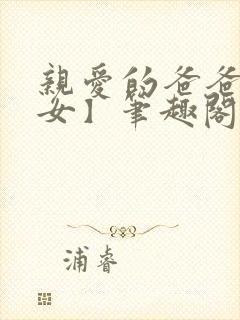 親愛的爸爸
女】筆趣閣
浦睿